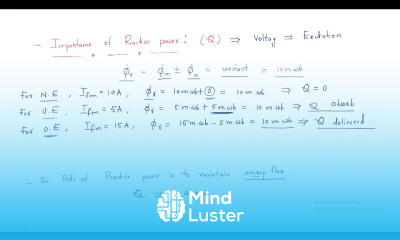 - Importance of Reactive power : (Q) ⇒ Voltag ⇒ Excitation
ϕr = ϕm ± ϕa = constant = 10 mwb
For N.E , Ifm = 10A , ϕr = 10mwb + 0 = 10 mwb ⇒ Q = 0
For U.E , Ifm = 5A , ϕr = 5 mwb + 5 mwb = 10 mwb ⇒ Q absorb
For O.E , Ifm = 15A , ϕr = 15 mwb - 5 mwb = 10 mwb ⇒ Q delivered
- The Role of Reactive power is to maintain airgap flux
Q
Mind
Luster